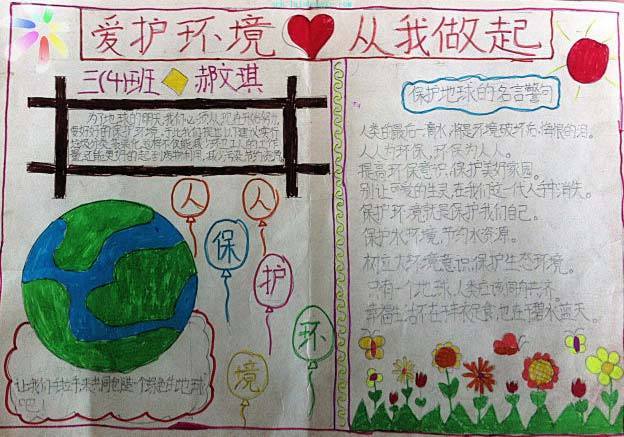 爱护环境 从我做起
三(4)班 郝文琪
为了地球的明天,我们必须从现在开始努力,
爱好好的保护环境。
人人保护环境
让我们手拉手,来共同创造一个绿色的地球
吧!
保护地球的名言警句
人类的最后一滴水,将是环境破坏后,悔恨的泪。
人人为环保,环保为人人。
提高环保意识,保护美好家园。
别让可爱的生灵,在我们这一代人手中消失。
保护环境就是保护我们自己。
保护水环境,节约水资源。
树立大环境意识,保护生态环境。
只有一个地球,人类应该同舟共济。
幸福生活不在于丰衣足食,也在于碧水蓝天。